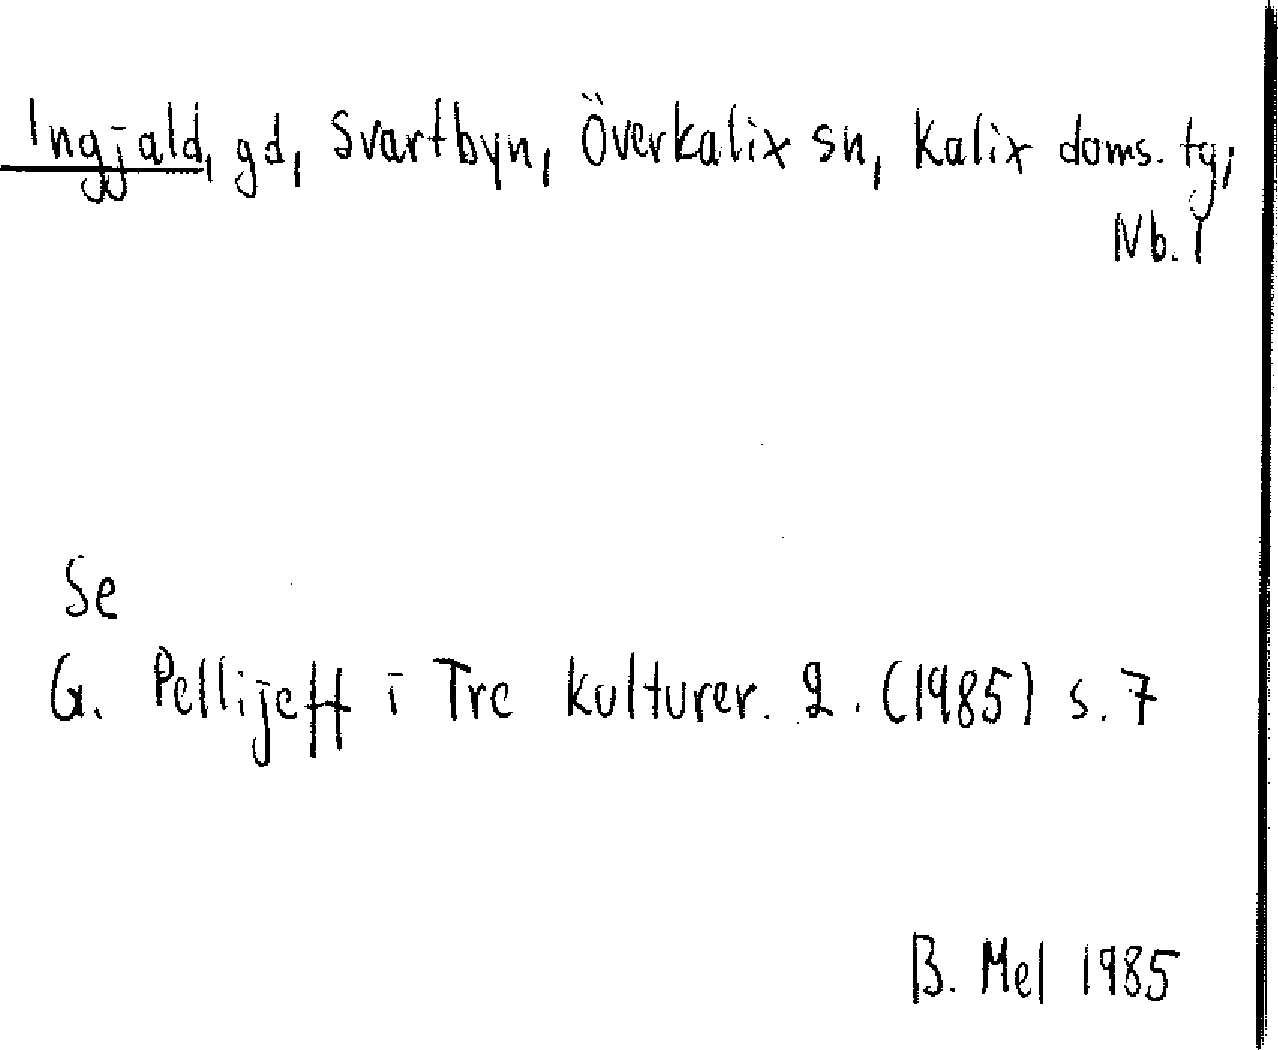 Ingjald, gd, Svartbyn, Överkalix sn, Kalix doms. tg,
Nb. l
Se
G. Pellijeff i Tre kulturer. 2. (1985) s. 7
B. Mel 1985